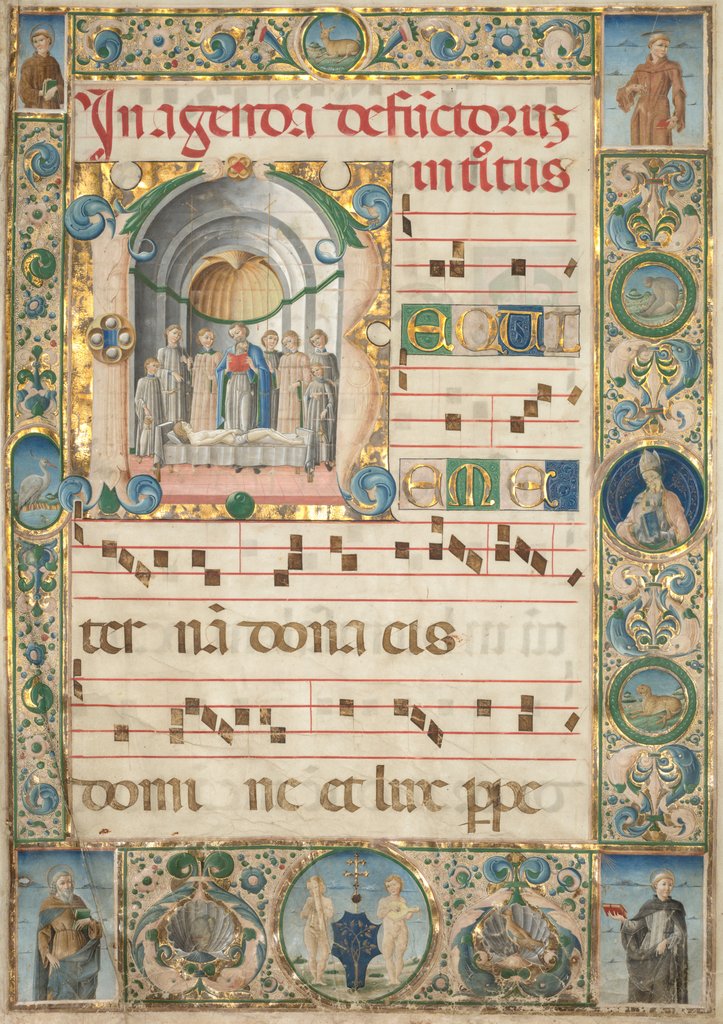 In agenda defūctoruȝ
intͦitus
REQUI
EM E
ter nā dona eis
domi ne et lux ꝑpe